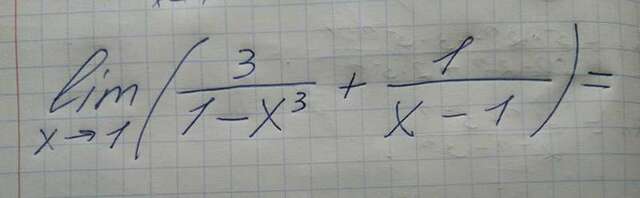 lim x→1 ( 3/(1-x³) + 1/(x-1) ) =